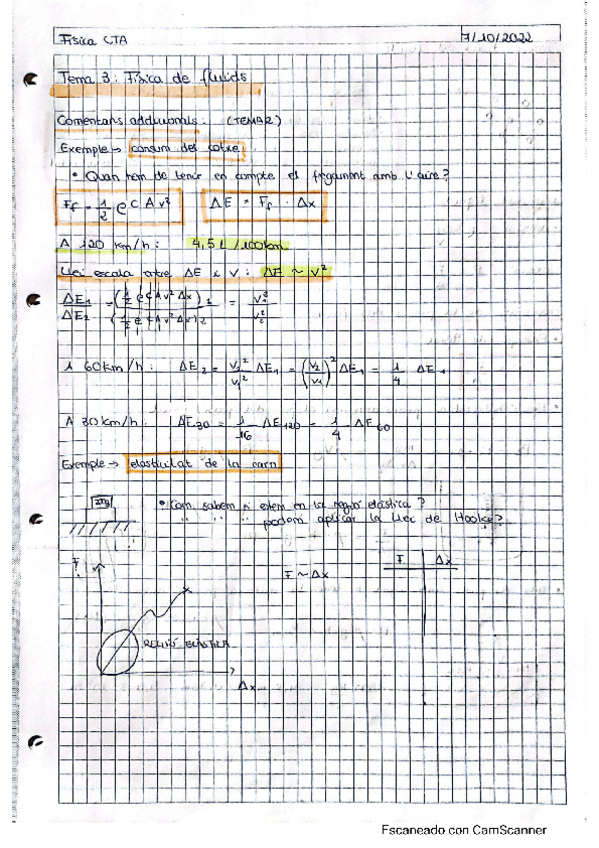 Física CTA 7/10/2022
Tema 3: Física de fluids
Comentaris addicionals: (TEMA 2)
Exemple → consum del cotxe
• Quan hem de tenir en compte el fregament amb l'aire?
Ff = 1/2 ρ C A v² ΔE = Ff · Δx
A 120 km/h: 4,5 L/100km.
Llei escala entre ΔE i v: ΔE ~ v²
ΔE1/ΔE2 = (1/2 ρ C A v² Δx)1/(1/2 ρ C A v² Δx)2 = v1²/v2²
A 60km/h: ΔE2 = v2²/v1² ΔE1 = (v2/v1)² ΔE1 = 1/4 ΔE1
A 30km/h: ΔE30 = 1/16 ΔE120 = 1/4 ΔE60
Exemple → elasticitat de la carn
• Com sabem si estem en la regió elàstica?
" " " " podem aplicar la Llei de Hooke?
F F ~ Δx F Δx
REGIÓ ELÀSTICA
Δx
Escaneado con CamScanner